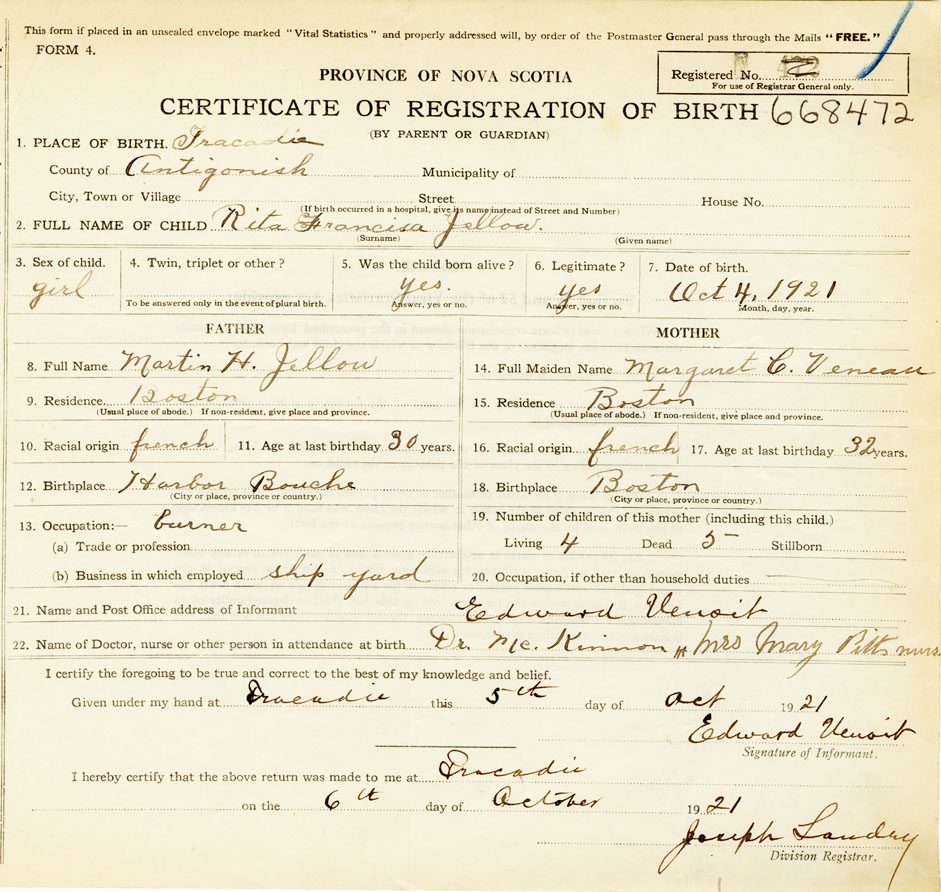 This form if placed in an unsealed envelope marked "Vital Statistics" and properly addressed will, by order of the Postmaster General pass through the Mails "FREE."
FORM 4.
PROVINCE OF NOVA SCOTIA
Registered No.
For use of Registrar General only.
CERTIFICATE OF REGISTRATION OF BIRTH 668472
(BY PARENT OR GUARDIAN)
1. PLACE OF BIRTH. Tracadie
County of Antigonish Municipality of
City, Town or Village Street House No.
(If birth occurred in a hospital, give its name instead of Street and Number)
2. FULL NAME OF CHILD Rita Francisa Jellow.
(Surname) (Given name)
3. Sex of child. 4. Twin, triplet or other? 5. Was the child born alive? 6. Legitimate? 7. Date of birth.
girl yes. yes Oct 4, 1921
To be answered only in the event of plural birth. Answer, yes or no. Answer, yes or no. Month, day, year.
FATHER
8. Full Name Martin H. Jellow
9. Residence. Boston
(Usual place of abode.) If non-resident, give place and province.
10. Racial origin french 11. Age at last birthday 30 years.
12. Birthplace Harbor Bouche
(City or place, province or country.)
13. Occupation:— burner
(a) Trade or profession
(b) Business in which employed ship yard
MOTHER
14. Full Maiden Name Margaret C. Veneau
15. Residence Boston
(Usual place of abode.) If non-resident, give place and province.
16. Racial origin french 17. Age at last birthday 32 years.
18. Birthplace Boston
(City or place, province or country.)
19. Number of children of this mother (including this child.)
Living 4 Dead 5 Stillborn
20. Occupation, if other than household duties
21. Name and Post Office address of Informant Edward Venoit
22. Name of Doctor, nurse or other person in attendance at birth Dr. Mc. Kinnon Mrs Mary Pitts nurs
I certify the foregoing to be true and correct to the best of my knowledge and belief.
Given under my hand at Tracadie this 5th day of Oct 1921
Edward Venoit
Signature of Informant.
I hereby certify that the above return was made to me at Tracadie
on the 6th day of October 1921
Joseph Landry
Division Registrar.